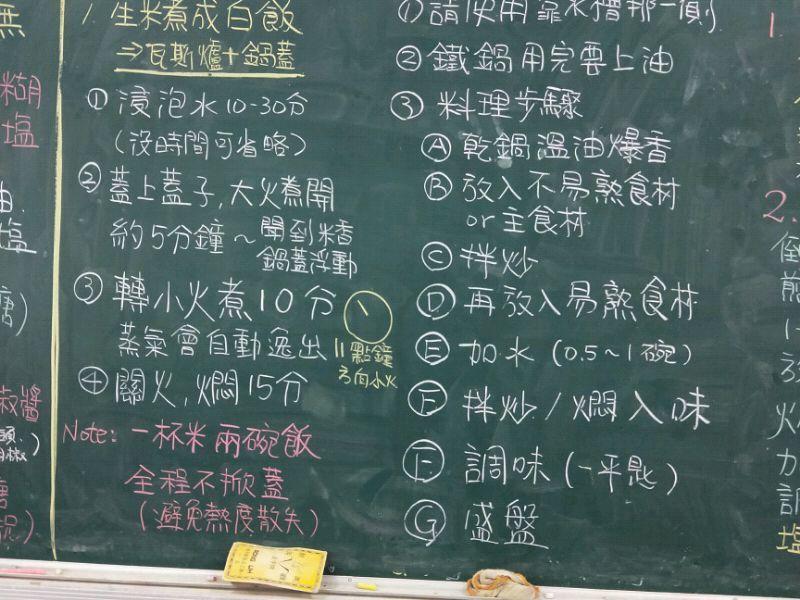 無
糊
塩
油
塩
糖)
椒醬
1. 生米煮成白飯
⇒瓦斯爐+鍋蓋
① 浸泡水10-30分
(沒時間可省略)
② 蓋上蓋子,大火煮開
約5分鐘~聞到米香
鍋蓋浮動
③ 轉小火煮10分
蒸氣會自動逸出
11點鐘
方向小火
④ 關火,燜15分
Note: 一杯米兩碗飯
全程不掀蓋
(避免熱度散失)
①請使用靠水槽那一側
②鐵鍋用完要上油
③ 料理步驟
Ⓐ 乾鍋溫油爆香
Ⓑ 放入不易熟食材
or主食材
Ⓒ 拌炒
Ⓓ 再放入易熟食材
Ⓔ 加水 (0.5~1碗)
Ⓕ 拌炒/燜入味
Ⓕ 調味 (一平匙)
Ⓖ 盛盤
1.
2.
倒
煎
放
加
調
塩